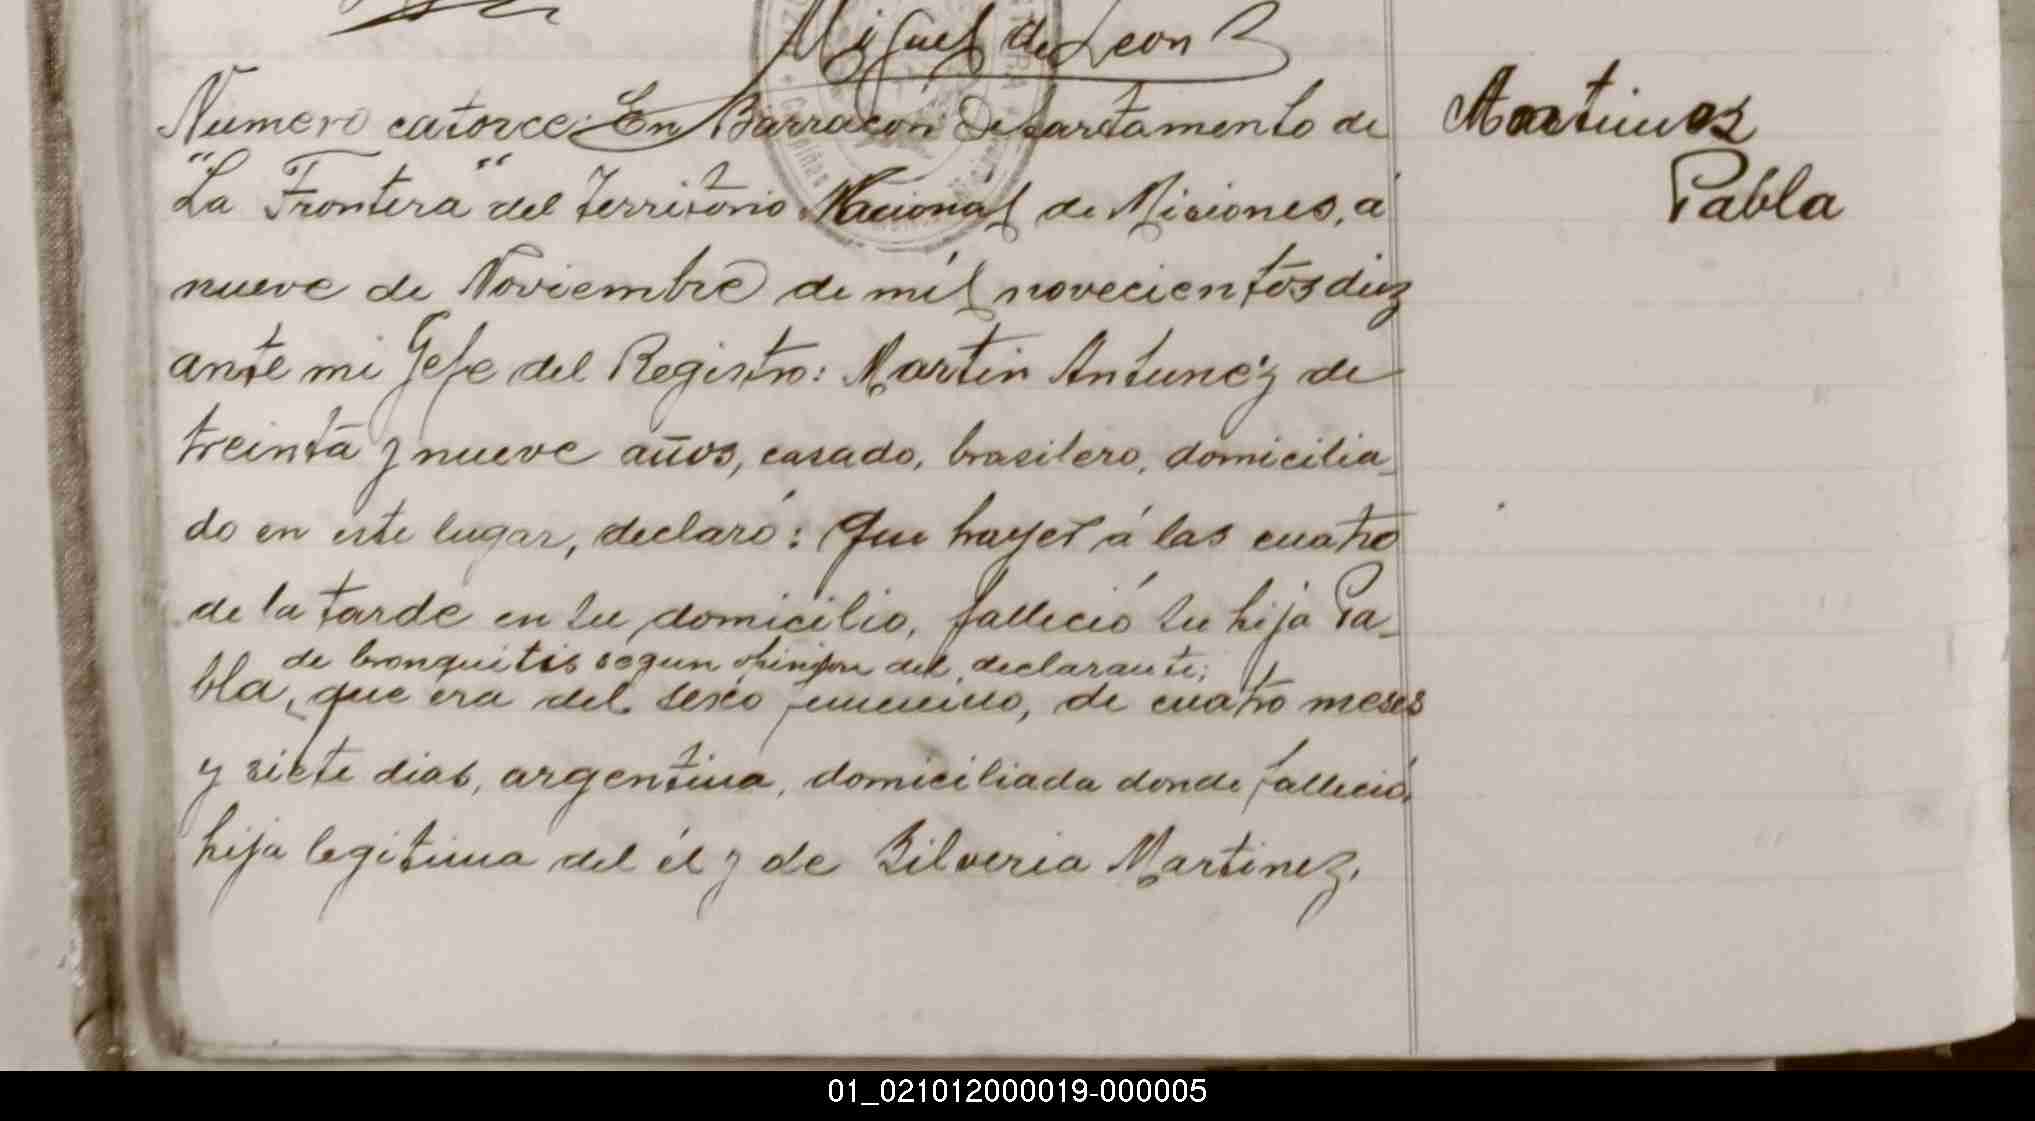 Miguel de Leon
Numero catorce: En Barracón Departamento de
"La Frontera" del Territorio Nacional de Misiones, á
nueve de Noviembre de mil novecientos diez
ante mi Gefe del Registro: Martin Antunéz de
treinta y nueve años, casado, brasilero, domicilia-
do en este lugar, declaró: Que hayer á las cuatro
de la tarde en su domicilio, falleció su hija Pa-
de bronquitis segun opinion del declarante;
bla, que era del sexo femenino, de cuatro meses
y siete dias, argentina, domiciliada donde falleció,
hija legitima del él y de Silveria Martinez.
Martinez
Pabla
01_021012000019-000005